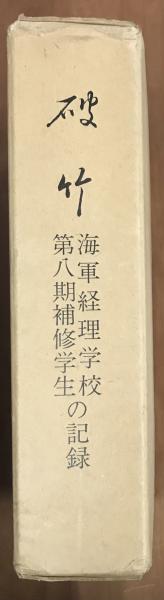 破竹
海軍経理学校
第八期補修学生の記録